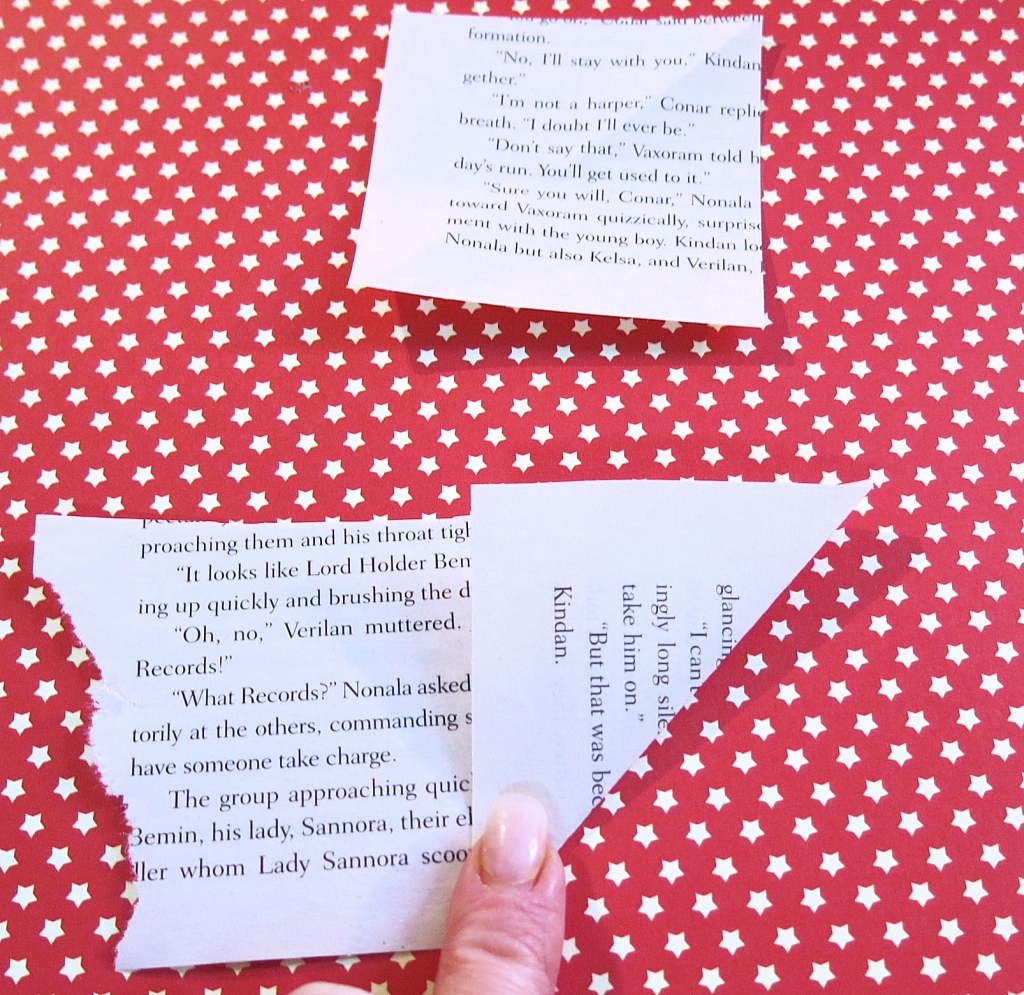 Conar said between
formation.
"No, I'll stay with you," Kindan
gether."
"I'm not a harper," Conar replie
breath. "I doubt I'll ever be."
"Don't say that," Vaxoram told h
day's run. You'll get used to it."
"Sure you will, Conar," Nonala
toward Vaxoram quizzically, surprise
ment with the young boy. Kindan lo
Nonala but also Kelsa, and Verilan,
proaching them and his throat tigh
"It looks like Lord Holder Bem
ing up quickly and brushing the d
"Oh, no," Verilan muttered.
Records!"
"What Records?" Nonala asked
torily at the others, commanding s
have someone take charge.
The group approaching quic
Bemin, his lady, Sannora, their el
ller whom Lady Sannora scoo
glancing
"I can't
ingly long sile
take him on."
"But that was bec
Kindan.